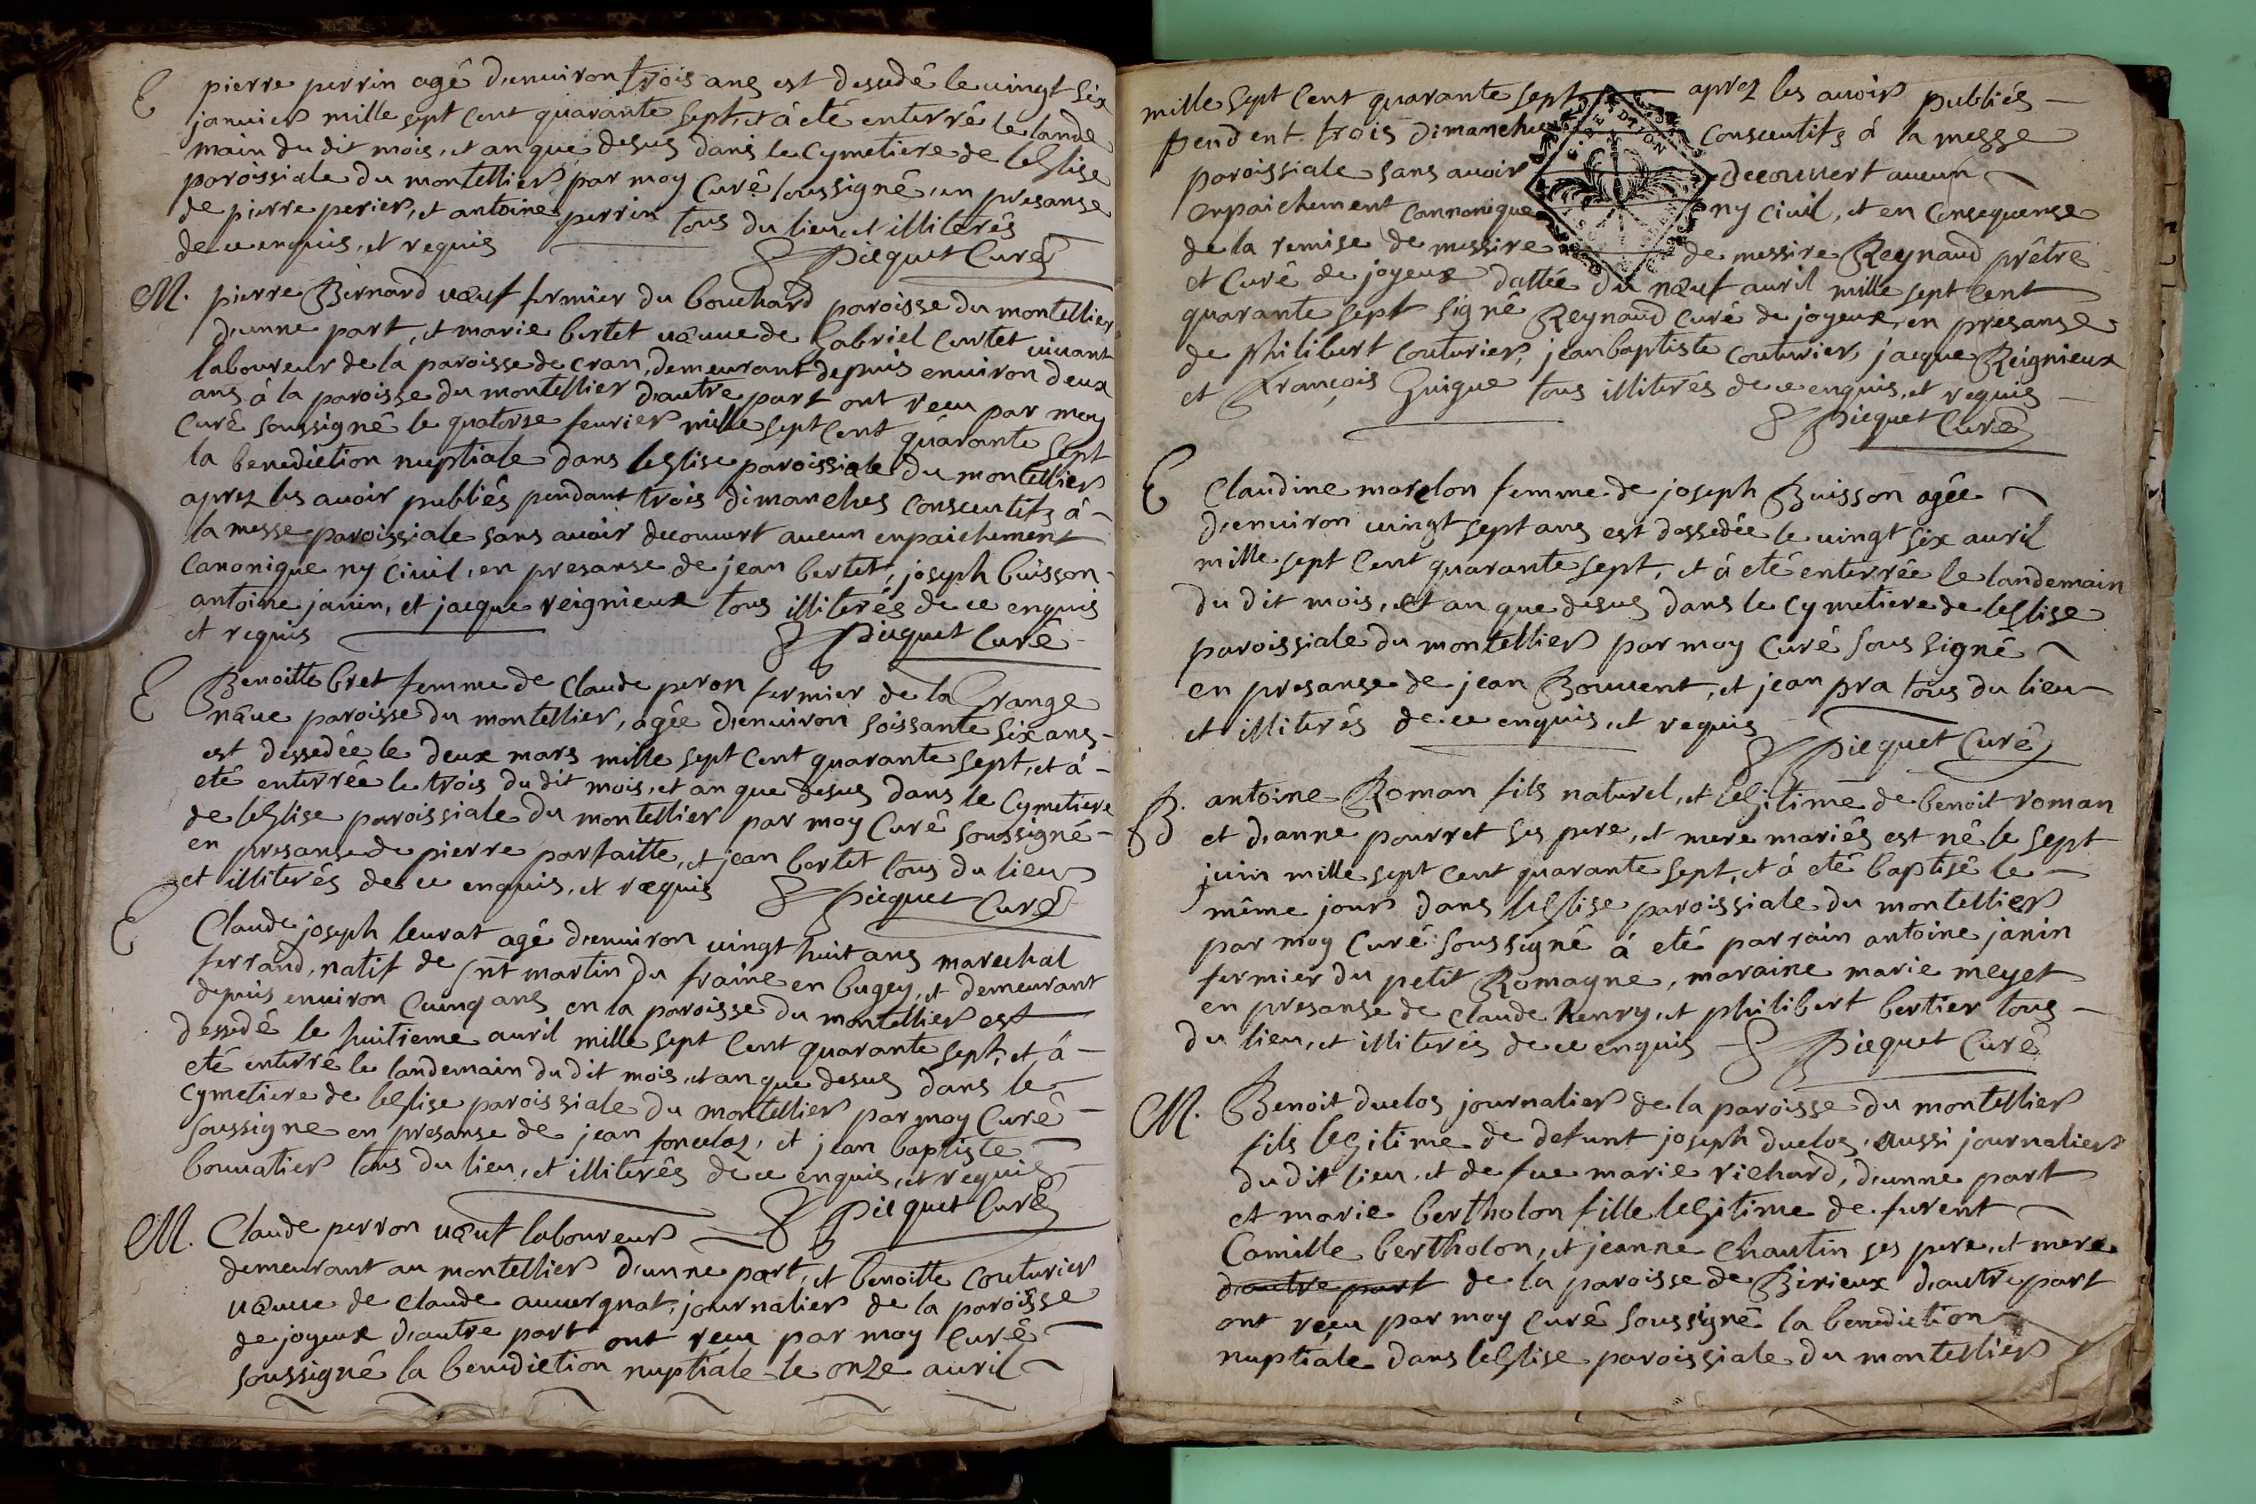 E pierre perrin agé d'enuiron trois ans est dessedé le uingt six
januier mille sept cent quarante sept, et à eté enterré le lande
main du dit mois, et an que desus dans le Cymetiere de leglise
paroissiale du montellier par moy Curé soussigné, en presanse
de pierre perier, et antoine perrin tous du lieu et illiterés
de ce enquis, et requis Picquet Curé
M. pierre Bernard ueuf fermier du bouchard paroisse du montellier
d'unne part, et marie bertet ueuue de Gabriel Curtet uiuant
laboureur de la paroisse de cran, demeurant depuis enuiron deux
ans à la paroisse du montellier d'autre part ont reçu par moy
Curé soussigné le quatorse feurier mille sept cent quarante sept
la benediction nuptiale dans leglise paroissiale du montellier
aprez les auoir publiés pendant trois dimanches consecutifs à
la messe paroissiale sans auoir decouuert aucun enpaichement
Canonique ny Ciuil, en presanse de jean bertet, joseph buisson
antoine janin, et jacque reignieux tous illiterés de ce enquis
et requis Picquet Curé
E Benoitte bret femme de Claude peron fermier de la Grange
neuue paroisse du montellier, agée d'enuiron soissante six ans
est dessedée le deux mars mille sept cent quarante sept, et à
eté enterrée le trois du dit mois, et an que desus dans le Cymetiere
de leglise paroissiale du montellier par moy Curé soussigné
en presanse de pierre parfaitte, et jean bertet tous du lieu
et illiterés de ce enquis, et requis Picquet Curé
E Claude joseph leurat agé d'enuiron uingt huit ans marechal
ferrand, natif de snt martin du fraine en bugey, et demeurant
depuis enuiron Cuinq ans en la paroisse du montellier est
dessedé le huitieme auril mille sept Cent quarante sept, et à
eté enterré le landemain du dit mois, et an que desus dans le
Cymetiere de leglise paroissiale du montellier par moy Curé
soussigne en presanse de jean fonuelas, et jean baptiste
bouuatier tous du lieu, et illiterés de ce enquis, et requis
Picquet Curé
M. Claude perron ueuf laboureur
demeurant au montellier d'unne part, et benoitte Couturier
ueuue de Claude auuergnat, journalier de la paroisse
de joyeux d'autre part ont reçu par moy Curé
soussigné la benediction nuptiale le onze auril
mille sept Cent quarante sept aprez les auoir publiés
pendent trois dimanches Consecutifs à la messe
paroissiale sans auoir decouuert aucun
enpaichement Cannonique ny Ciuil, et en Consequense
de la remise de messire de messire Reynaud prêtre
et Curé de joyeux dattée du neuf auril mille sept Cent
quarante sept signé Reynaud Curé de joyeux, en presanse
de philibert Couturier, jean baptiste Couturier, jacque Reignieux
et François Guigue tous illiterés de ce enquis, et requis
Picquet Curé
E Claudine marelon femme de joseph Buisson agée
d'enuiron uingt sept ans est dessedée le uingt six auril
mille sept Cent quarante sept, et à eté enterrée le landemain
du dit mois, et an que desus dans le Cymetiere de leglise
paroissiale du montellier par moy Curé sous signé
en presanse de jean Bouuent, et jean pra tous du lieu
et illiterés de ce enquis, et requis
Picquet Curé
B. antoine Roman fils naturel, et legitime de benoit roman
et d'anne pourret ses pere, et mere mariés est né le sept
juin mille sept cent quarante sept, et à eté baptisé le
même jour dans leglise paroissiale du montellier
par moy Curé soussigné à eté parrain antoine janin
fermier du petit Romagne, maraine marie meyet
en presanse de Claude henry, et philibert bertier tous
du lieu, et illiterés de ce enquis Picquet Curé
M. Benoit duclos journalier de la paroisse du montellier
fils legitime de defunt joseph duclos, aussi journalier
du dit lieu, et de fue marie richard, d'unne part
et marie bertholon fille legitime de furent
Camille bertholon, et jeanne Chautin ses pere, et mere
d'autre part de la paroisse de Birieux d'autre part
ont reçu par moy Curé soussigné la benediction
nuptiale dans leglise paroissiale du montellier